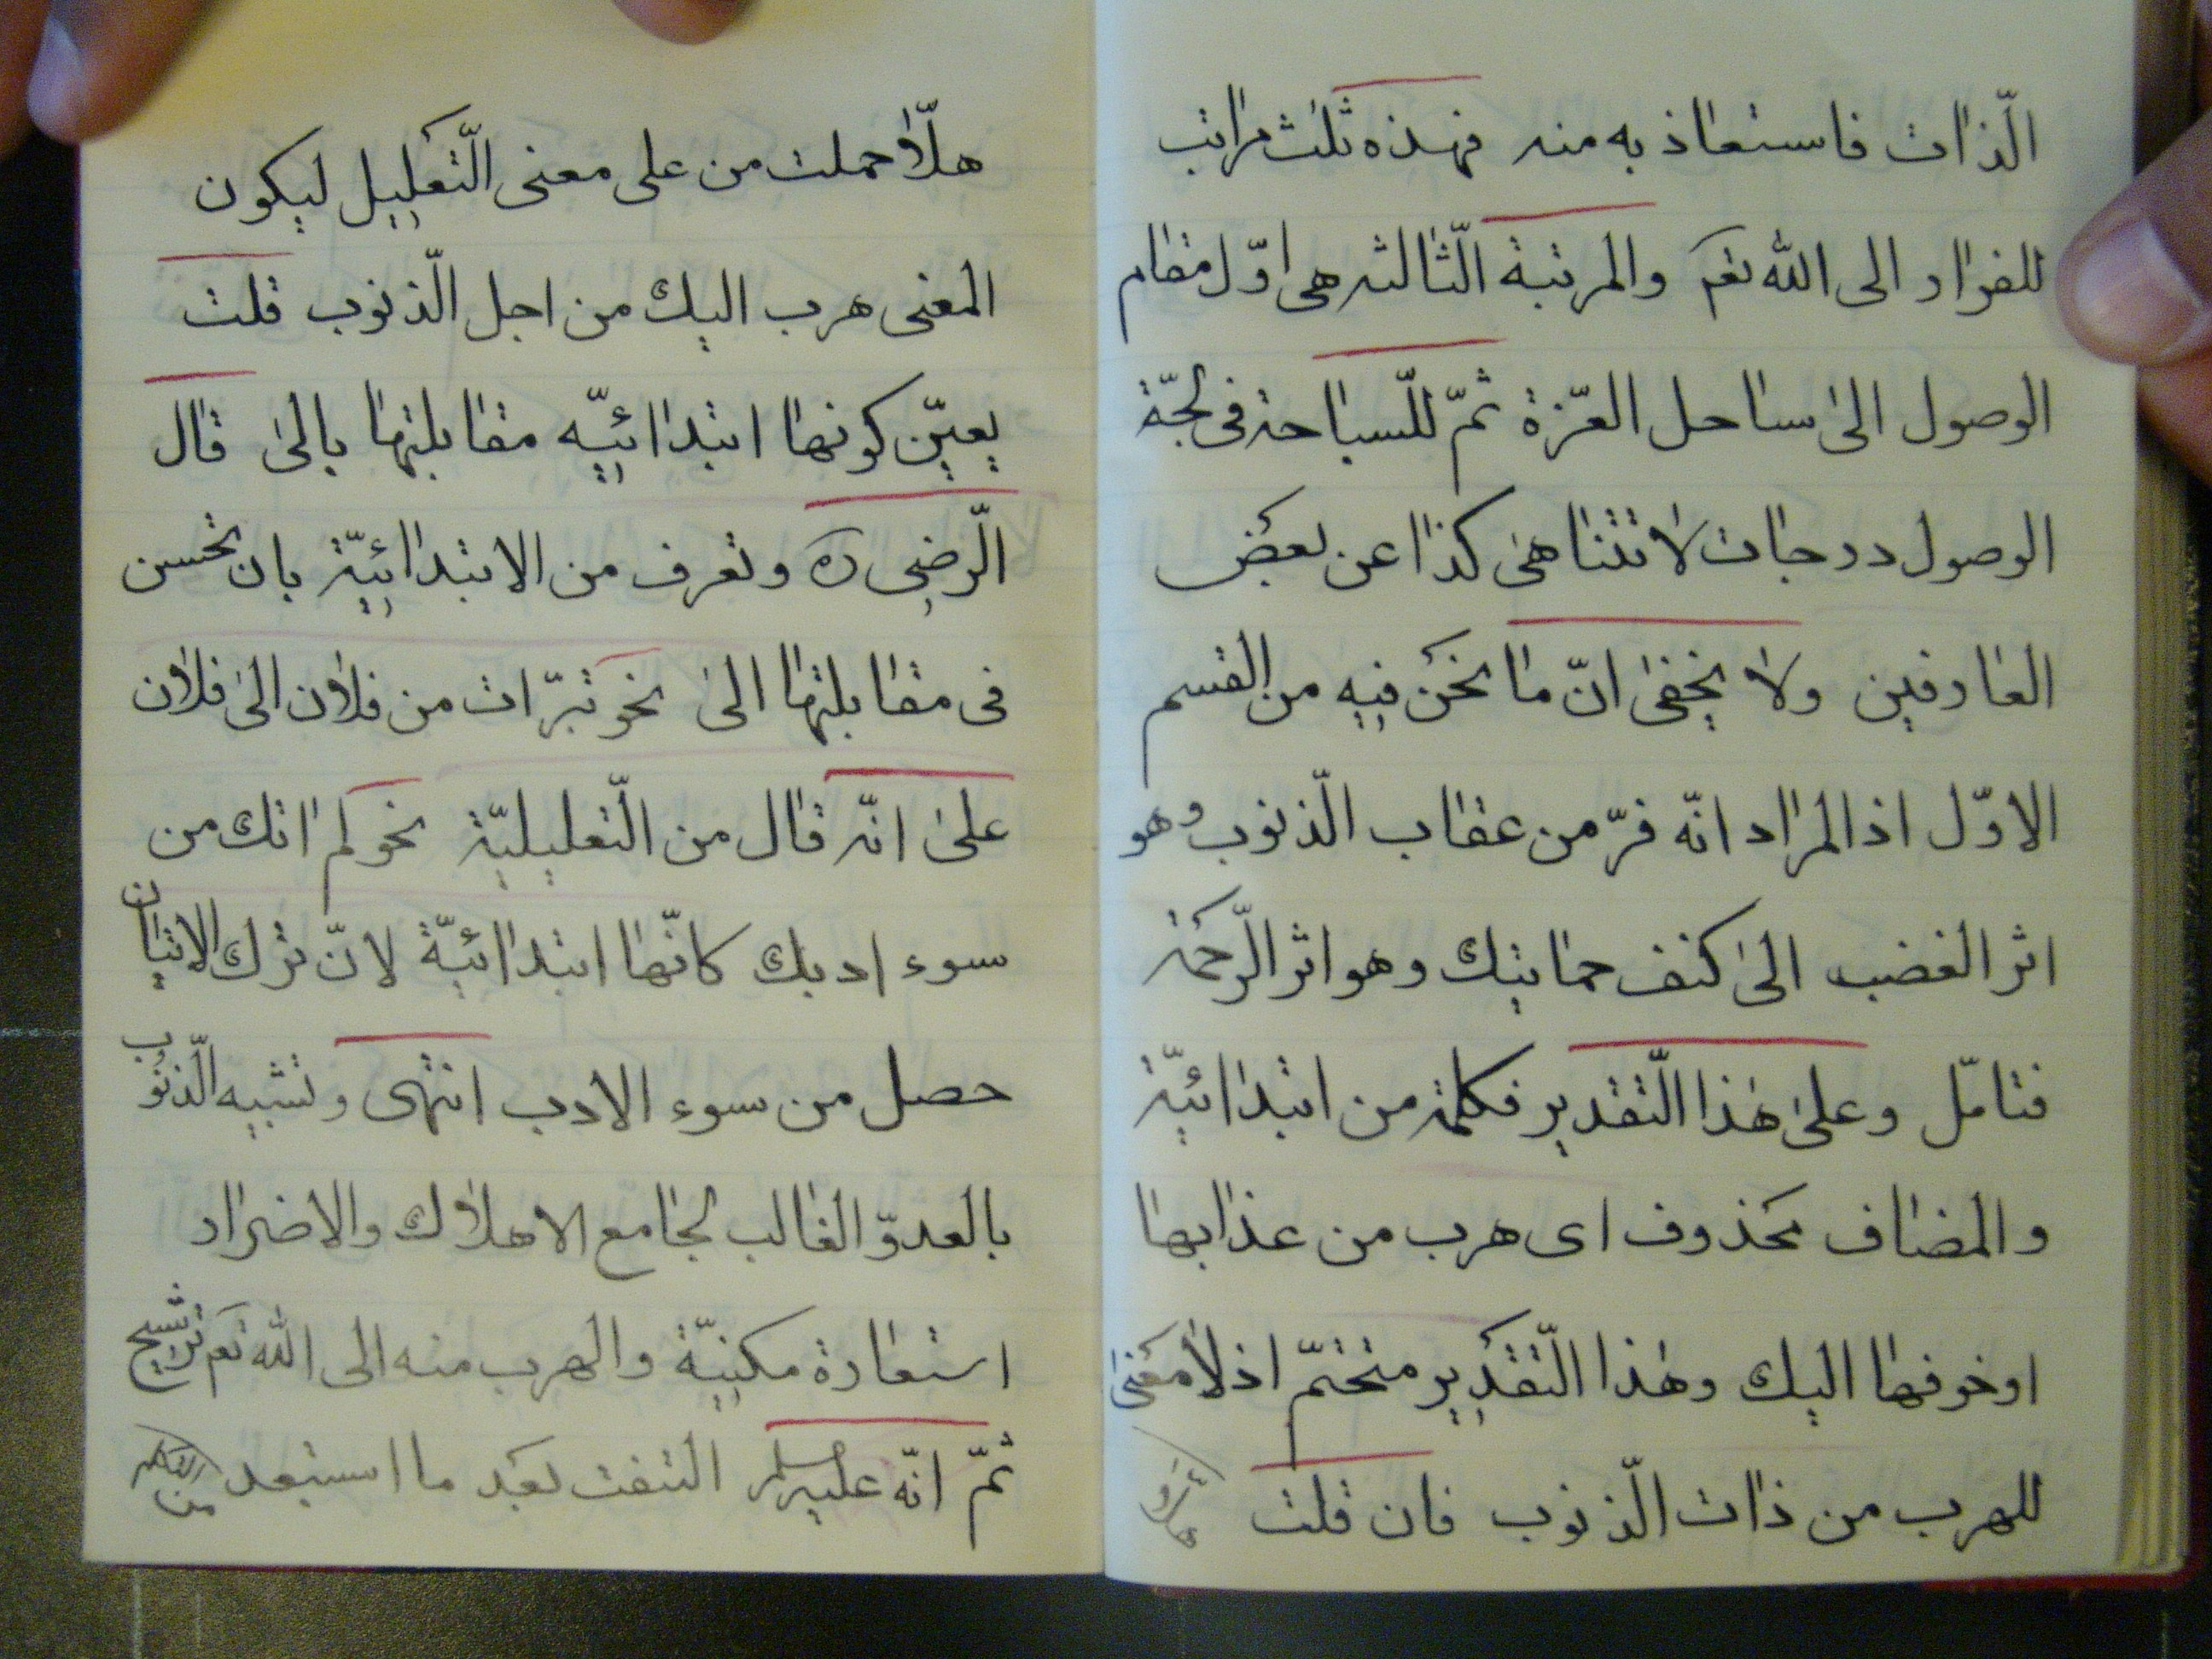 الّذات فاستعاذ به منه فهذه ثلث مراتب
للفرار الى الله تعم والمرتبة الّثالثه هى اوّل مقام
الوصول الىٰ ساحل العزّة ثمّ للّسباحة فى لجّة
الوصول درجات لا تتناهىٰ كذا عن بعض
العارفين ولا يخفىٰ انّ ما نحن فيه من القسم
الاوّل اذ المراد انّه فرّ من عقاب الّذنوب وهو
اثر الغضب الىٰ كنف حمايتك وهو اثر الرّحمة
فتامّل وعلىٰ هٰذا الّتقدير فكلمة من ابتدائيّة
والمضاف محذوف اى هرب من عذابها
او خوفها اليك وهٰذا الّتقدير متحتمّ اذ لا معنىٰ
للهرب من ذات الّذنوب فان قلت
هلّا حملت من على معنى الّتعليل ليكون
المعنى هرب اليك من اجل الّذنوب قلت
يعيّن كونها ابتدائيّه مقابلتها بالىٰ قال
الّرضى ره وتعرف من الابتدائيّة بان تحسن
فى مقابلتها الىٰ نحو تبرّات من فلان الىٰ فلان
علىٰ انّه قال من الّتعليليّة نحو لم اتك من
سوء ادبك كانّها ابتدائيّة لانّ ترك الاتيان
حصل من سوء الادب انتهى وتشبيه الّذنوب
بالعدوّ الغالب لجامع الاهلاك والاضرار
استعارة مكنيّة والهرب منه الى الله تعم ترشيح
ثمّ انّه عليه السلم التفت بعد ما استبعد